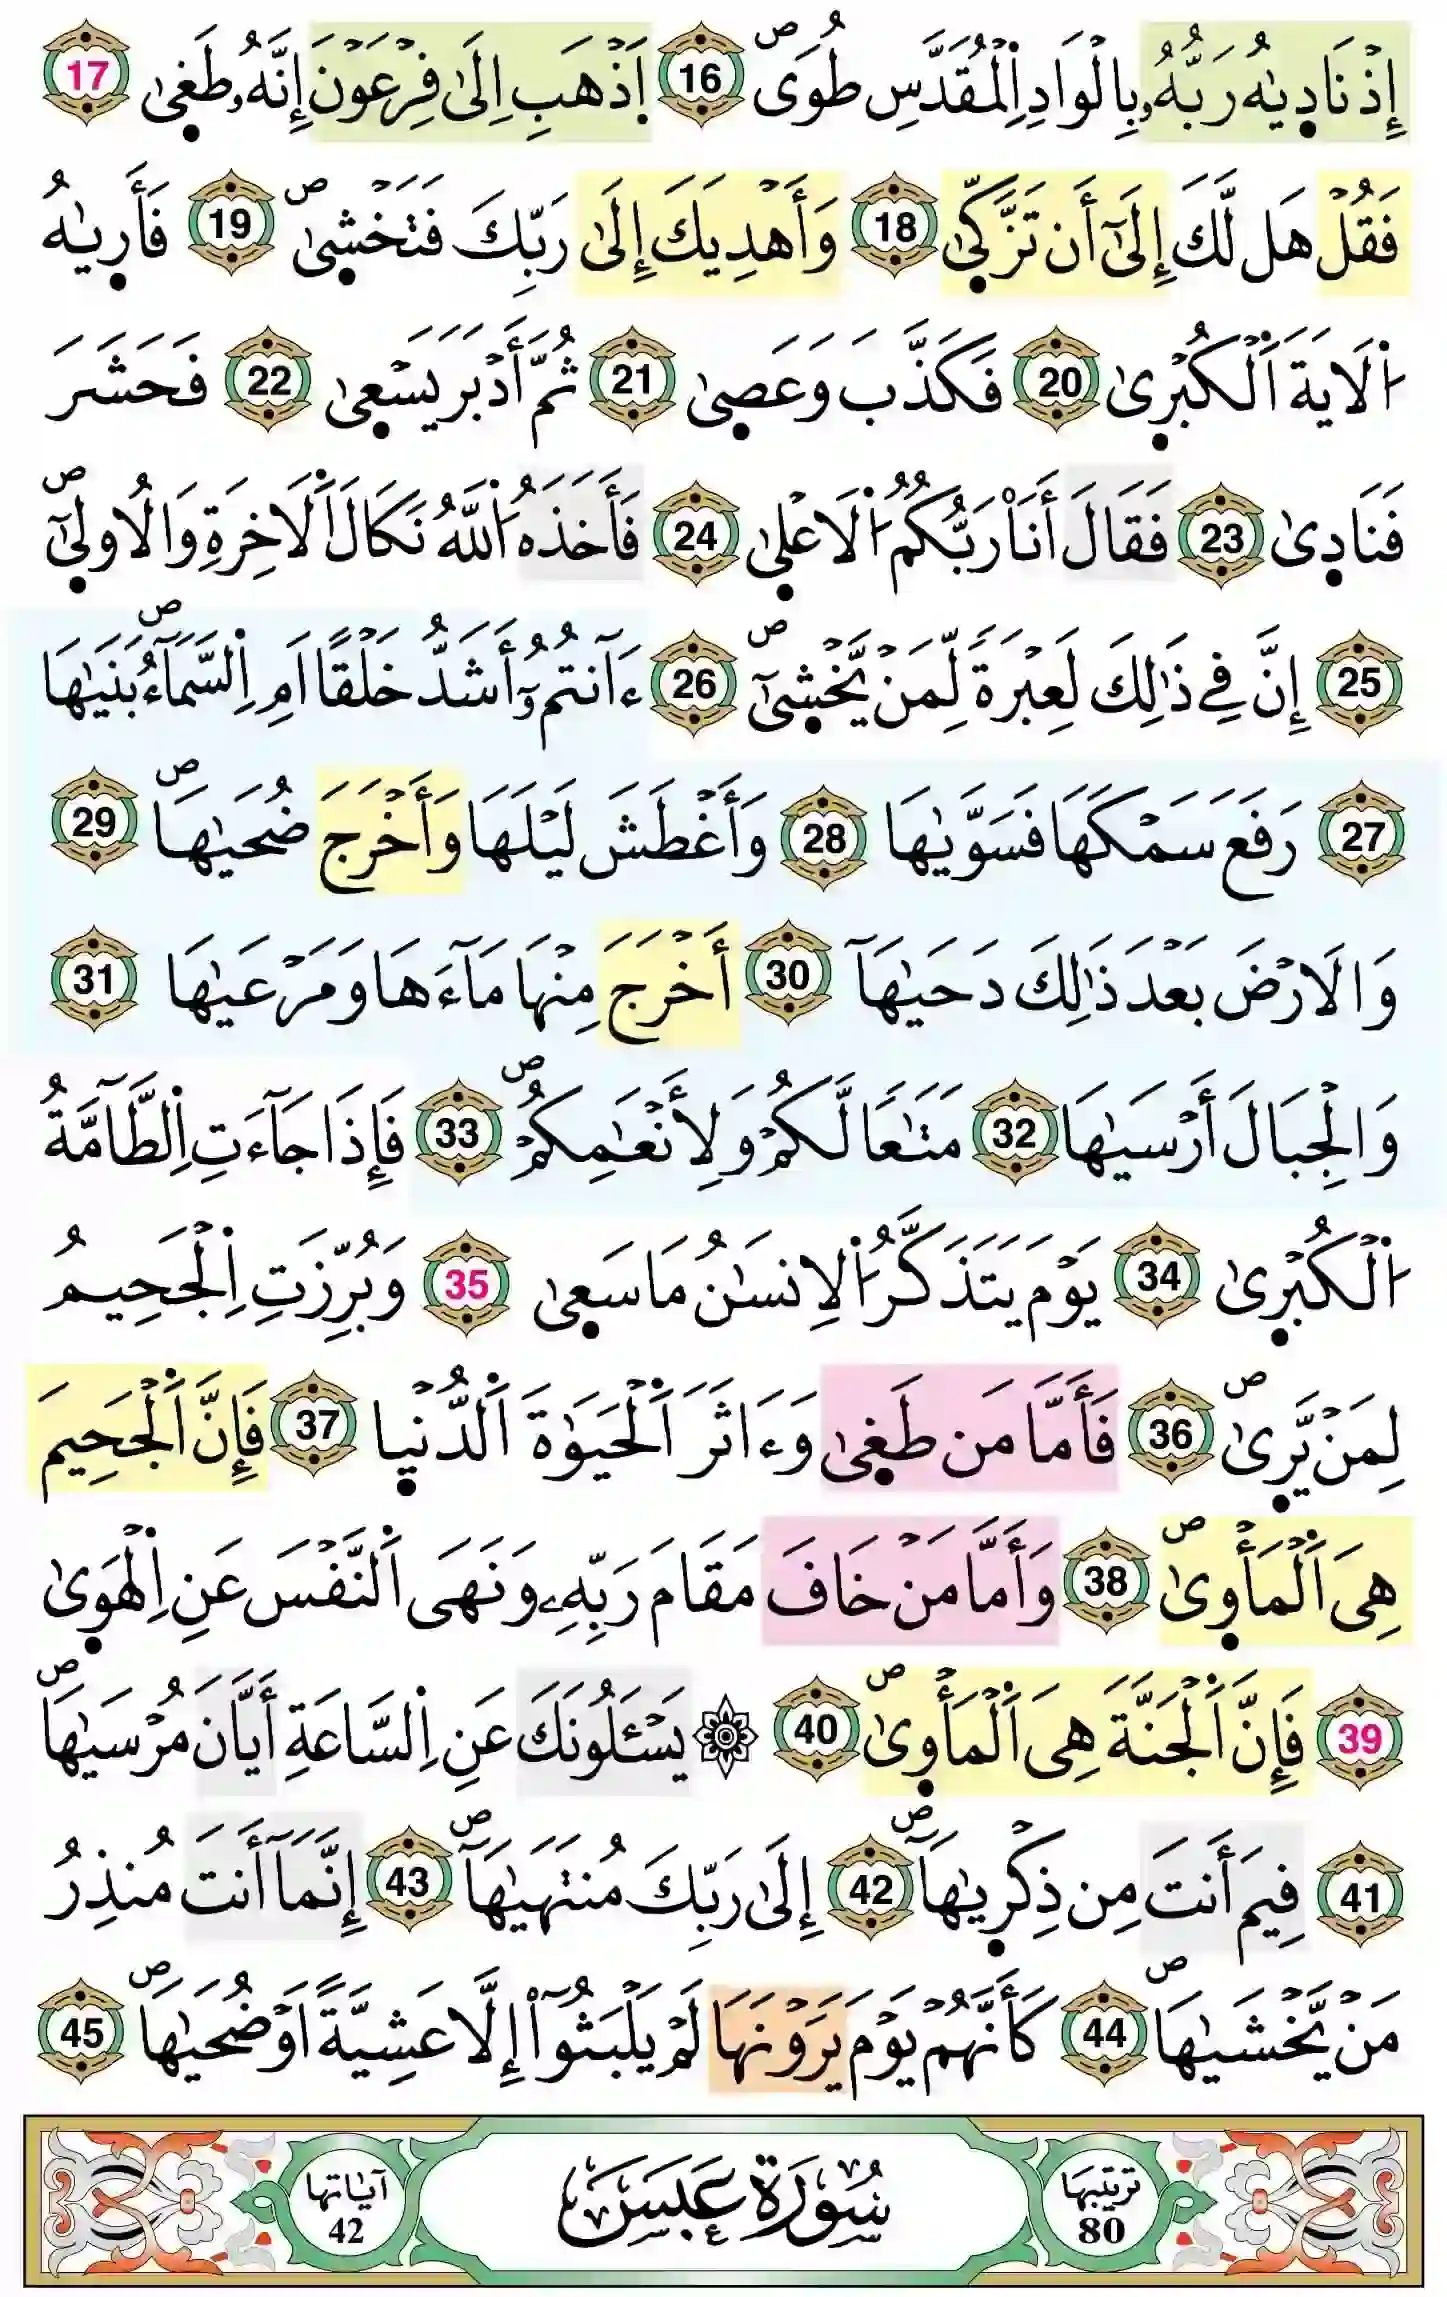 إِذْ نَادِيٰهُ رَبُّهُۥ بِالْوَادِ اِ۬لْمُقَدَّسِ طُوَىۖ 16 اَ۪ذْهَبِ اِلَىٰ فِرْعَوْنَ إِنَّهُۥ طَغِىٰ 17
فَقُلْ هَل لَّكَ إِلَىٰٓ أَن تَزَّكِّىٰ 18 وَأَهْدِيَكَ إِلَىٰ رَبِّكَ فَتَخْشِىٰۖ 19 فَأَرِيٰهُ
اُ۬لَايَةَ اَ۬لْكُبْرِىٰ 20 فَكَذَّبَ وَعَصِىٰ 21 ثُمَّ أَدْبَرَ يَسْعِىٰ 22 فَحَشَرَ
فَنَادِىٰ 23 فَقَالَ أَنَا۠ رَبُّكُمُ اُ۬لَاعْلِىٰ 24 فَأَخَذَهُ اُ۬للَّهُ نَكَالَ اَ۬لَاخِرَةِ وَالُاولِىٰٓۖ
25 إِنَّ فِے ذَٰلِكَ لَعِبْرَةٗ لِّمَنْ يَّخْشِىٰٓۖ 26 ءَآنتُمُۥٓ أَشَدُّ خَلْقاً اَمِ اِ۬لسَّمَآءُۖ بَنَيٰهَا
27 رَفَعَ سَمْكَهَا فَسَوَّيٰهَا 28 وَأَغْطَشَ لَيْلَهَا وَأَخْرَجَ ضُحَيٰهَاۖ 29
وَالَارْضَ بَعْدَ ذَٰلِكَ دَحَيٰهَآ 30 أَخْرَجَ مِنْهَا مَآءَهَا وَمَرْعَيٰهَا 31
وَالْجِبَالَ أَرْسَيٰهَا 32 مَتَٰعاٗ لَّكُمْ وَلِأَنْعَٰمِكُمْۖ 33 فَإِذَا جَآءَتِ اِ۬لطَّآمَّةُ
اُ۬لْكُبْرِىٰ 34 يَوْمَ يَتَذَكَّرُ اُ۬لِانسَٰنُ مَا سَعِىٰ 35 وَبُرِّزَتِ اِ۬لْجَحِيمُ
لِمَنْ يَّرِىٰۖ 36 فَأَمَّا مَن طَغِىٰ وَءَاثَرَ اَ۬لْحَيَوٰةَ اَ۬لدُّنْيِا 37 فَإِنَّ اَ۬لْجَحِيمَ
هِىَ اَ۬لْمَأْوِىٰۖ 38 وَأَمَّا مَنْ خَافَ مَقَامَ رَبِّهِۦ وَنَهَى اَ۬لنَّفْسَ عَنِ اِ۬لْهَوِىٰ
39 فَإِنَّ اَ۬لْجَنَّةَ هِىَ اَ۬لْمَأْوِىٰۖ 40 ۞ يَسْـَٔلُونَكَ عَنِ اِ۬لسَّاعَةِ أَيَّانَ مُرْسَيٰهَاۖ
41 فِيمَ أَنتَ مِن ذِكْرِيٰهَآۖ 42 إِلَىٰ رَبِّكَ مُنتَهَيٰهَآۖ 43 إِنَّمَآ أَنتَ مُنذِرُ
مَنْ يَّخْشَيٰهَاۖ 44 كَأَنَّهُمْ يَوْمَ يَرَوْنَهَا لَمْ يَلْبَثُوٓاْ إِلَّا عَشِيَّةً اَوْ ضُحَيٰهَاۖ 45
ترتيبها 80 سُورَةُ عَبَسَ آياتها 42